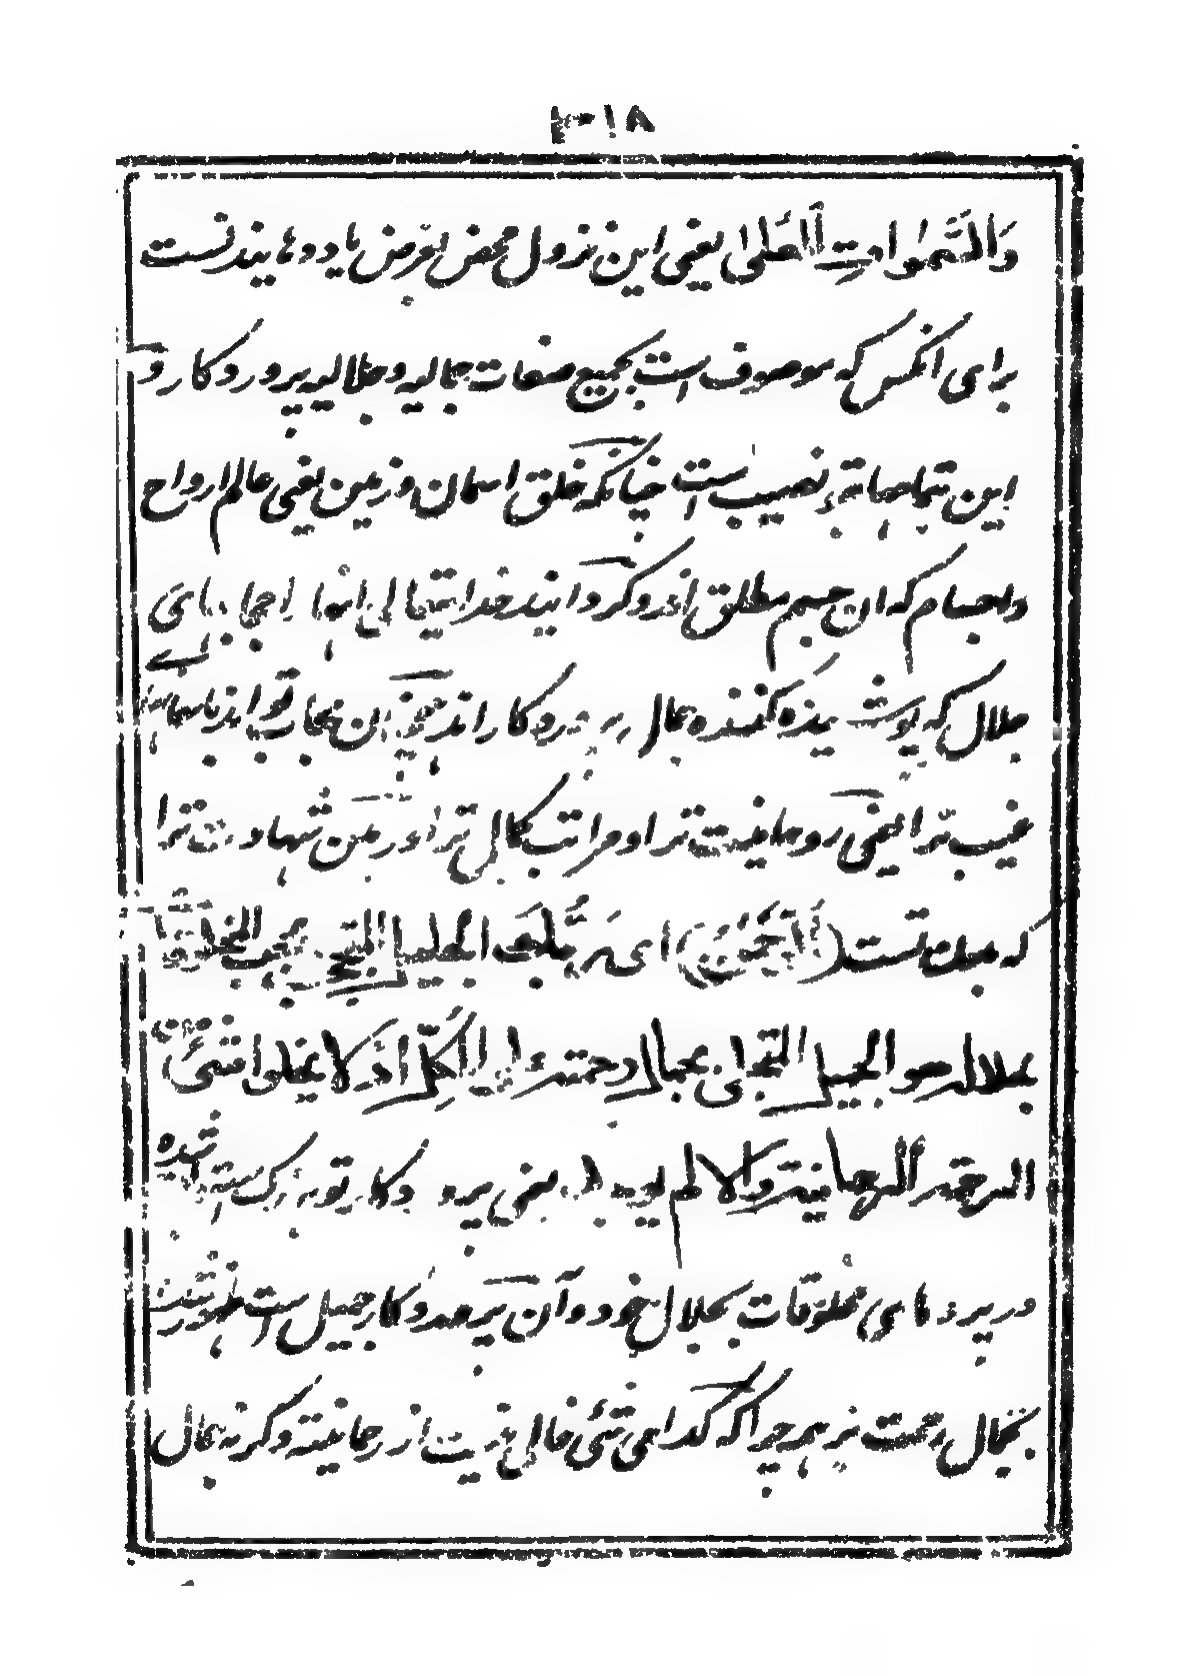 وَالسَّمٰوَاتِ الْعُلٰى یعنی این نزول محض بغرض یاد دهانیدنست
برای انکس که موصوف است بجمیع صفات جمالیه و جلالیه پروردکار و
این تجلیها نصیب است چنانکه خلق اسمان و زمین یعنی عالم ارواح
و اجسام که ان جسم مطلق اند و کردانید خدایتعالی انها را حجابهای
جلال که پوشیده کننده جمال پروردکار اند همچنین ان بخار قوا اند
غیب ترا یعنی روحانیت ترا و مراتب کمال ترا و زمین شهادت ترا
که بدن تست (اَلرَّحْمٰنُ) ای ربک الجلیل المحتجب بحجب المخلوقات
بجلاله هو الجمیل التجلی بجمال رحمته علی الکل اذ لا یخلوا شیئ من
الرحمة الرحمانیة والا لم یوجد یعنی پروردکار تو بزرک است
در پردهای مخلوقات بجلال خود و آن پروردکار جمیل است
بجمال رحمت بر همه چرا که کدامی شئی خالی نیست از رحمانیته وکرنه بحال